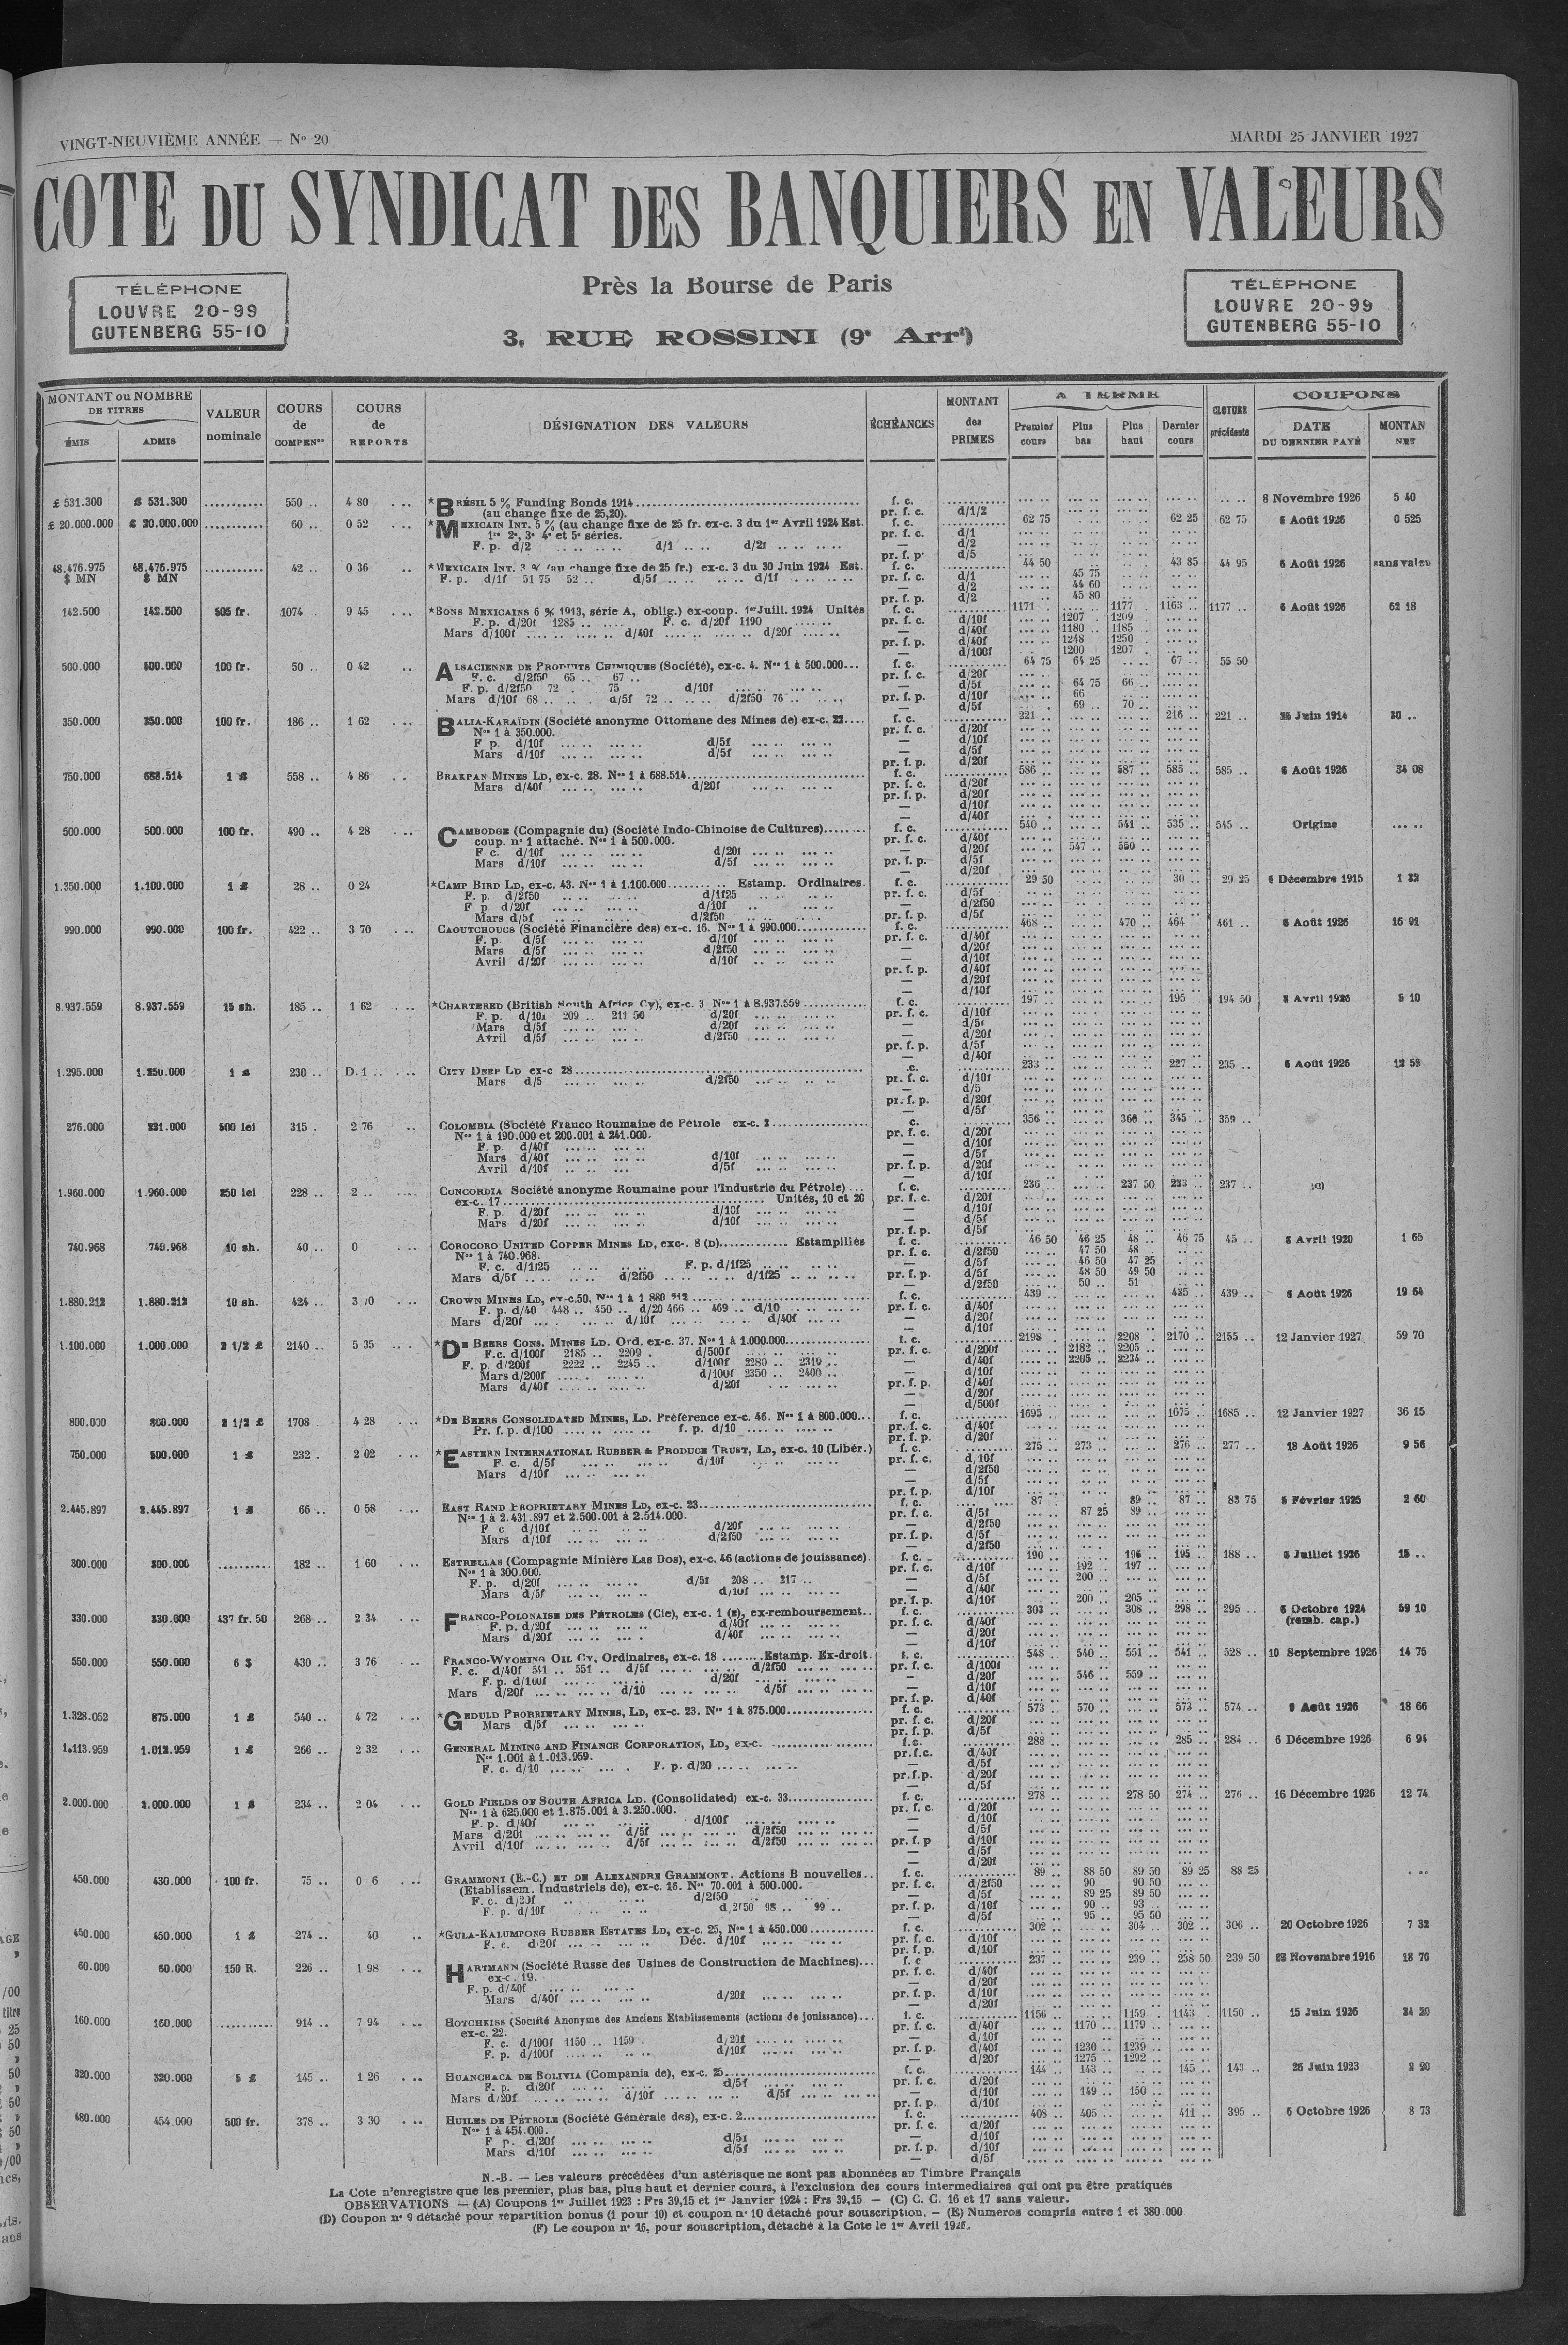 VINGT-NEUVIÈME ANNÉE — No 20
MARDI 25 JANVIER 1927
COTE DU SYNDICAT DES BANQUIERS EN VALEURS
Près la Bourse de Paris
3, RUE ROSSINI (9e Arrt)
TÉLÉPHONE
LOUVRE 20-99
GUTENBERG 55-10
TÉLÉPHONE
LOUVRE 20-99
GUTENBERG 55-10
MONTANT ou NOMBRE DE TITRES
ÉMIS
ADMIS
VALEUR nominale
COURS de COMPENon
COURS de REPORTS
DÉSIGNATION DES VALEURS
ÉCHÉANCES
MONTANT des PRIMES
A TERME
Premier cours
Plus bas
Plus haut
Dernier cours
CLOTURE précédente
COUPONS
DATE DU DERNIER PAYÉ
MONTAN NET
£ 531.300 £ 531.300 .......... 550 .. 4 80 *BRÉSIL 5 % Funding Bonds 1914 f. c. 8 Novembre 1926 5 40
(au change fixe de 25,20). pr. f. c. d/1/2
£ 20.000.000 £ 20.000.000 .......... 60 .. 0 52 *MEXICAIN INT. 5 % (au change fixe de 25 fr. ex-c. 3 du 1er Avril 1924 Est. f. c. 62 75 62 25 62 75 6 Août 1926 0 525
1re 2e, 3e 4e et 5e séries. pr. f. c. d/1
F. p. d/2 d/1 d/2f — d/2
pr. f. p. d/5
48.476.975 48.476.975 .......... 42 .. 0 36 *MEXICAIN INT. 3 % (au change fixe de 25 fr.) ex-c. 3 du 30 Juin 1924 Est. f. c. 44 50 43 85 44 95 6 Août 1926 sans valeu
$ MN $ MN F. p. d/1f 51 75 52 .. d/5f d/1f pr. f. c. d/1 45 75
— d/2 44 60
pr. f. p. d/2 45 80
142.500 142.500 505 fr. 1074 9 45 *BONS MEXICAINS 6 % 1913, série A, oblig.) ex-coup. 1er Juill. 1924 Unités f. c. 1171 1177 1163 1177 .. 6 Août 1926 62 18
F. p. d/20f 1285 .. F. c. d/20f 1190 pr. f. c. d/10f 1207 1209
Mars d/100f d/40f d/20f — d/40f 1180 1185
pr. f. p. d/40f 1248 1250
— d/100f 1200 1207
500.000 500.000 100 fr. 50 .. 0 42 ALSACIENNE DE PRODUITS CHIMIQUES (Société), ex-c. 4. Nos 1 à 500.000... f. c. 64 75 64 25 67 .. 55 50
F. c. d/2f50 65 .. 67 .. pr. f. c. d/20f
F. p. d/2f50 72 . 75 d/10f — d/5f 64 75 66 ..
Mars d/10f 68 .. d/5f 72 .. d/2f50 76 .. pr. f. p. d/10f 66
— d/5f 69 .. 70 ..
350.000 350.000 100 fr. 186 .. 1 62 BALIA-KARAÏDIN (Société anonyme Ottomane des Mines de) ex-c. 22.... f. c. 221 .. 216 .. 221 .. Juin 1914 30 ..
Nos 1 à 350.000. pr. f. c. d/20f
F p. d/10f d/5f — d/10f
Mars d/10f d/5f — d/5f
pr. f. p. d/20f
750.000 688.514 1 £ 558 .. 4 86 BRAKPAN MINES LD, ex-c. 28. Nos 1 à 688.514 f. c. 586 .. 587 .. 585 .. 585 .. 6 Août 1926 34 08
Mars d/40f d/20f pr. f. c. d/20f
pr. f. p. d/20f
— d/10f
— d/40f
500.000 500.000 100 fr. 490 .. 4 28 CAMBODGE (Compagnie du) (Société Indo-Chinoise de Cultures) f. c. 540 .. 541 .. 535 .. 545 .. Origine
coup. no 1 attaché. Nos 1 à 500.000. pr. f. c. d/40f
F c. d/10f d/20f — d/20f 547 .. 550 ..
Mars d/10f d/5f pr. f. p. d/5f
— d/20f
1.350.000 1.100.000 1 £ 28 .. 0 24 *CAMP BIRD LD, ex-c. 43. Nos 1 à 1.100.000 Estamp. Ordinaires f. c. 29 50 30 .. 29 25 6 Décembre 1915 1 32
F. p. d/2f50 d/1f25 pr. f. c. d/5f
F p d/20f d/10f — d/2f50
Mars d/5f d/2f50 pr. f. p. d/5f
990.000 990.000 100 fr. 422 .. 3 70 CAOUTCHOUCS (Société Financière des) ex-c. 16. Nos 1 à 990.000 f. c. 468 .. 470 .. 464 .. 461 .. 6 Août 1926 16 91
F. p. d/5f d/10f pr. f. c. d/40f
Mars d/5f d/2f50 — d/20f
Avril d/20f d/10f — d/10f
pr. f. p. d/40f
— d/20f
— d/10f
8.937.559 8.937.559 15 sh. 185 .. 1 62 *CHARTERED (British South Africa Cy), ex-c. 3 Nos 1 à 8.937.559 f. c. 197 .. 195 .. 194 50 8 Avril 1926 5 10
F. p. d/10f 209 .. 211 50 d/20f pr. f. c. d/10f
Mars d/5f d/20f — d/5f
Avril d/5f d/2f50 — d/20f
pr. f. p. d/5f
— d/40f
1.295.000 1.250.000 1 £ 230 .. D. 1 .. CITY DEEP LD ex-c 28 .c. 233 .. 227 .. 235 .. 6 Août 1926
Mars d/5 d/2f50 pr. f. c. d/10f
— d/5
pr. f. p. d/20f
— d/5f
276.000 231.000 500 lei 315 . 2 76 COLOMBIA (Société Franco Roumaine de Pétrole ex-c. c. 356 .. 345 .. 359 ..
Nos 1 à 190.000 et 200.001 à 241.000. pr. f. c. d/20f
F. p. d/40f — d/10f
Mars d/40f d/10f — d/5f
Avril d/10f d/5f pr. f. p. d/20f
— d/10f
1.960.000 1.960.000 250 lei 228 .. 2 .. CONCORDIA Société anonyme Roumaine pour l'Industrie du Pétrole) f. c. 236 237 50 233 .. 237 ..
ex-c. 17 Unités, 10 et 20 pr. f. c. d/20f
F. p. d/20f d/10f — d/10f
Mars d/20f d/10f — d/5f
pr. f. p. d/5f
740.968 740.968 10 sh. 40 .. 0 COROCORO UNITED COPPER MINES LD, exc-. 8 (D) Estampillés f. c. 46 50 46 25 48 .. 46 75 45 .. 8 Avril 1920 1 65
Nos 1 à 740.968. pr. f. c. d/2f50 47 50 48 ..
F. c. d/1f25 F. p. d/1f25 — d/5f 46 50 47 25
Mars d/5f d/2f50 d/1f25 pr. f. p. d/5f 48 50 49 50
— d/2f50 50 .. 51
1.880.212 1.880.212 10 sh. 424 .. 3 70 CROWN MINES LD, ex-c.50. Nos 1 à 1 880 212 f. c. 439 435 .. 439 .. 6 Août 1926 19 64
F. p. d/40 448 .. 450 .. d/20 466 .. 469 .. d/10 pr. f. c. d/40f
Mars d/20f d/10f d/40f — d/20f
— d/10f
1.100.000 1.000.000 2 1/2 £ 2140 .. 5 35 *DE BEERS CONS. MINES LD. Ord. ex-c. 37. Nos 1 à 1.000.000 f. c. 2198 2208 2170 2155 .. 12 Janvier 1927 59 70
F.c. d/100f 2185 .. 2209 . d/500f pr. f. c. d/200f 2182 2205
F. p. d/200f 2222 .. 2245 .. d/100f 2280 .. 2319 .. — d/40f 2205 2234
Mars d/200f d/100f 2350 .. 2400 .. — d/10f
Mars d/40f d/20f pr. f. p. d/40f
— d/20f
— d/500f
800.000 800.000 2 1/2 £ 1708 4 28 *DE BEERS CONSOLIDATED MINES, LD. Préférence ex-c. 46. Nos 1 à 800.000... f. c. 1695 1675 1685 .. 12 Janvier 1927 36 15
Pr. f. p. d/100 f. p. d/10 pr. f. c. d/40f
pr. f. p. d/20f
750.000 500.000 1 £ 232 . 2 02 *EASTERN INTERNATIONAL RUBBER & PRODUCE TRUST, LD, ex-c. 10 (Libér.) f. c. 275 273 .. 276 .. 277 .. 18 Août 1926 9 56
F. c. d/5f d/10f pr. f. c. d/10f
Mars d/10f — d/2f50
— d/5f
pr. f. p. d/10f
2.445.897 2.445.897 1 £ 66 .. 0 58 EAST RAND PROPRIETARY MINES LD, ex-c. 23 f. c. 87 89 .. 87 .. 83 75 5 Février 1925 2 60
Nos 1 à 2.431.897 et 2.500.001 à 2.514.000. pr. f. c. d/5f 87 25 89 ..
F c d/10f d/20f — d/2f50
Mars d/10f d/2f50 pr. f. p. d/5f
— d/2f50
300.000 300.000 .......... 182 .. 1 60 ESTRELLAS (Compagnie Minière Las Dos), ex-c. 46 (actions de jouissance) f. c. 190 .. 196 195 .. 188 .. 6 Juillet 1926 15 ..
Nos 1 à 300.000. pr. f. c. d/10f 192 197 ..
F. p. d/20f d/5f 208 .. 217 .. — d/5f 200
Mars d/5f d/10f — d/40f
pr. f. p. d/10f 200 205
330.000 330.000 437 fr. 50 268 .. 2 34 FRANCO-POLONAISE DES PÉTROLES (Cie), ex-c. 1 (E), ex-remboursement f. c. 303 .. 308 .. 298 .. 295 .. 6 Octobre 1924 59 10
F. p. d/20f d/40f pr. f. c. d/40f (remb. cap.)
Mars d/20f d/40f — d/20f
— d/10f
550.000 550.000 6 $ 430 .. 3 76 FRANCO-WYOMING OIL Cy, Ordinaires, ex-c. 18 Estamp. Ex-droit. f. c. 548 .. 540 .. 551 .. 541 .. 528 .. 10 Septembre 1926 14 75
F. c. d/40f 541 .. 551 .. d/5f d/2f50 pr. f. c. d/100f
F. p. d/100f d/20f — d/20f 546 .. 559 ..
Mars d/20f d/10 d/5f — d/10f
pr. f. p. d/40f
1.328.052 875.000 1 £ 540 .. 4 72 *GEDULD PROPRIETARY MINES, LD, ex-c. 23. Nos 1 à 875.000 f. c. 573 .. 570 .. 573 .. 574 .. Août 1926 18 66
Mars d/5f pr. f. c. d/20f
pr. f. p. d/5f
1.113.959 1.013.959 1 £ 266 .. 2 32 GENERAL MINING AND FINANCE CORPORATION, LD, ex-c. f.c. 288 .. 285 .. 284 .. 6 Décembre 1926 6 94
Nos 1.001 à 1.013.959. pr.f.c. d/40f
F. c. d/10 F. p. d/20 — d/5f
pr.f.p. d/20f
— d/5f
2.000.000 2.000.000 1 £ 234 .. 2 04 GOLD FIELDS OF SOUTH AFRICA LD. (Consolidated) ex-c. 33 f. c. 278 .. 278 50 274 .. 276 .. 16 Décembre 1926 12 74
Nos 1 à 625.000 et 1.875.001 à 3.250.000. pr. f. c. d/20f
F. p. d/40f d/100f — d/10f
Mars d/20f d/5f d/2f50 — d/5f
Avril d/10f d/5f d/2f50 pr. f. p d/10f
— d/5f
— d/20f
450.000 430.000 100 fr. 75 .. 0 6 GRAMMONT (E.-C.) ET DE ALEXANDRE GRAMMONT. Actions B nouvelles f. c. 89 .. 88 50 89 50 89 25 88 25
(Etablissem. Industriels de), ex-c. 16. Nos 70.001 à 500.000. pr. f. c. d/2f50 90 90 50
F. c. d/20f d/2f50 — d/5f 89 25 89 50
F. p. d/10f d/2f50 98 .. 99 .. pr. f. p. d/10f 90 .. 93 ..
— d/5f 95 .. 95 50
450.000 450.000 1 £ 274 .. 40 *GULA-KALUMPONG RUBBER ESTATES LD, ex-c. 25, Nos 1 à 450.000 f. c. 302 .. 304 .. 302 .. 306 .. 20 Octobre 1926 7 32
F. c. d/20f Déc. d/10f pr. f. c. d/10f
pr. f. p. d/10f
60.000 60.000 150 R. 226 .. 1 98 HARTMANN (Société Russe des Usines de Construction de Machines)... f. c 237 .. 239 .. 238 50 239 50 Novembre 1916 18 70
ex-c. 19. pr. f. c. d/40f
F. p. d/40f — d/20f
Mars d/40f d/20f pr. f. p. d/10f
— d/20f
160.000 160.000 .......... 914 .. 7 94 HOTCHKISS (Société Anonyme des Anciens Etablissements (actions de jouissance)... f. c. 1156 1159 1143 1150 .. 15 Juin 1926 34 20
ex-c. 22. pr. f. c. d/40f 1170 1179
F. c. d/100f 1150 .. 1159 . d/20f — d/10f
F. p. d/100f d/10f pr. f. p. d/40f 1230 1239
— d/20f 1275 1292
320.000 320.000 5 £ 145 .. 1 26 HUANCHACA DE BOLIVIA (Compania de), ex-c. 25 f. c. 144 .. 143 .. 145 .. 143 .. 26 Juin 1923 2 90
F. p. d/20f d/5f pr. f. c. d/20f
Mars d/20f d/10f d/5f — d/10f 149 .. 150 ..
pr. f. p. d/10f
480.000 454.000 500 fr. 378 .. 3 30 HUILES DE PÉTROLE (Société Générale des), ex-c. 2 f. c. 408 .. 405 .. 411 .. 395 .. 6 Octobre 1926 8 73
Nos 1 à 454.000. pr. f. c. d/20f
F p. d/20f d/5f — d/10f
Mars d/10f d/5f pr. f. p. d/10f
— d/5f
N.-B. — Les valeurs précédées d'un astérisque ne sont pas abonnées au Timbre Français
La Cote n'enregistre que les premier, plus bas, plus haut et dernier cours, à l'exclusion des cours intermediaires qui ont pu être pratiqués
OBSERVATIONS — (A) Coupons 1er Juillet 1923 : Frs 39,15 et 1er Janvier 1924 : Frs 39,15 — (C) C. C. 16 et 17 sans valeur.
(D) Coupon no 9 détaché pour répartition bonus (1 pour 10) et coupon no 10 détaché pour souscription. — (E) Numeros compris entre 1 et 380.000
(F) Le coupon no 16, pour souscription, détaché à la Cote le 1er Avril 1926.